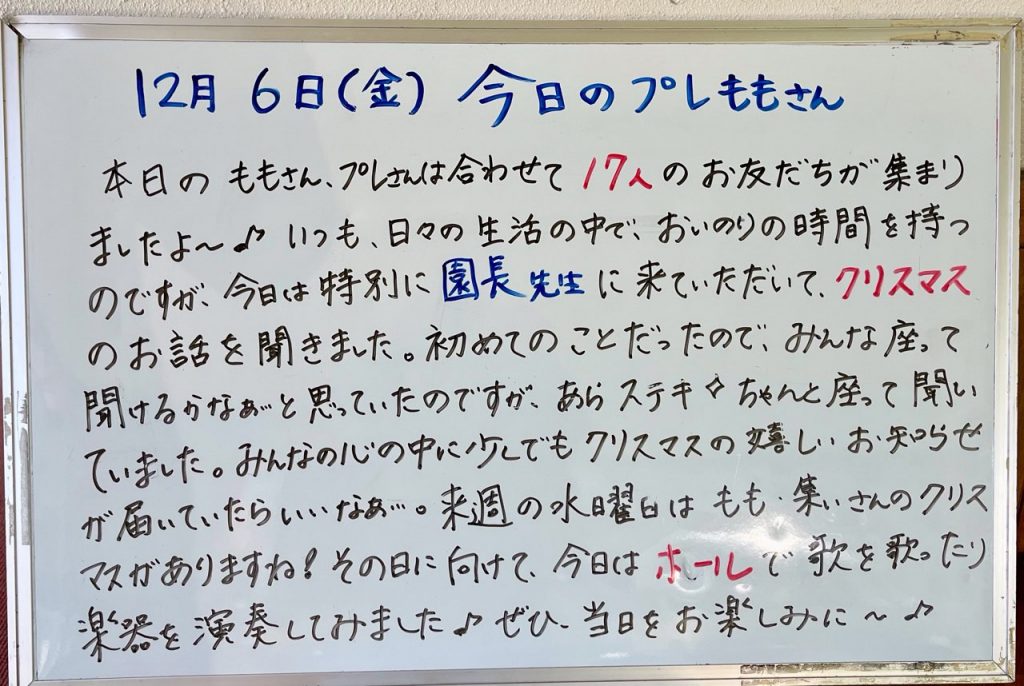 12月 6日(金) 今日のプレももさん
本日の ももさん、プレさんは合わせて 17人の お友だちが 集まり
ましたよ～♪ いつも、日々の 生活の中で、おいのりの時間を持つ
のですが、今日は特別に 園長先生に来ていただいて、クリスマス
のお話を聞きました。初めてのことだったので、みんな座って
聞けるかなぁ…と思っていたのですが、あらステキ✧ちゃんと座って聞い
ていました。みんなの心の中に少しでもクリスマスの嬉しいお知らせ
が届いていたらいいなぁ…。来週の水曜日は もも・集いさんのクリス
マスがありますね！その日に向けて、今日はホールで歌を歌ったり
楽器を演奏してみました♪ぜひ、当日をお楽しみに～♪